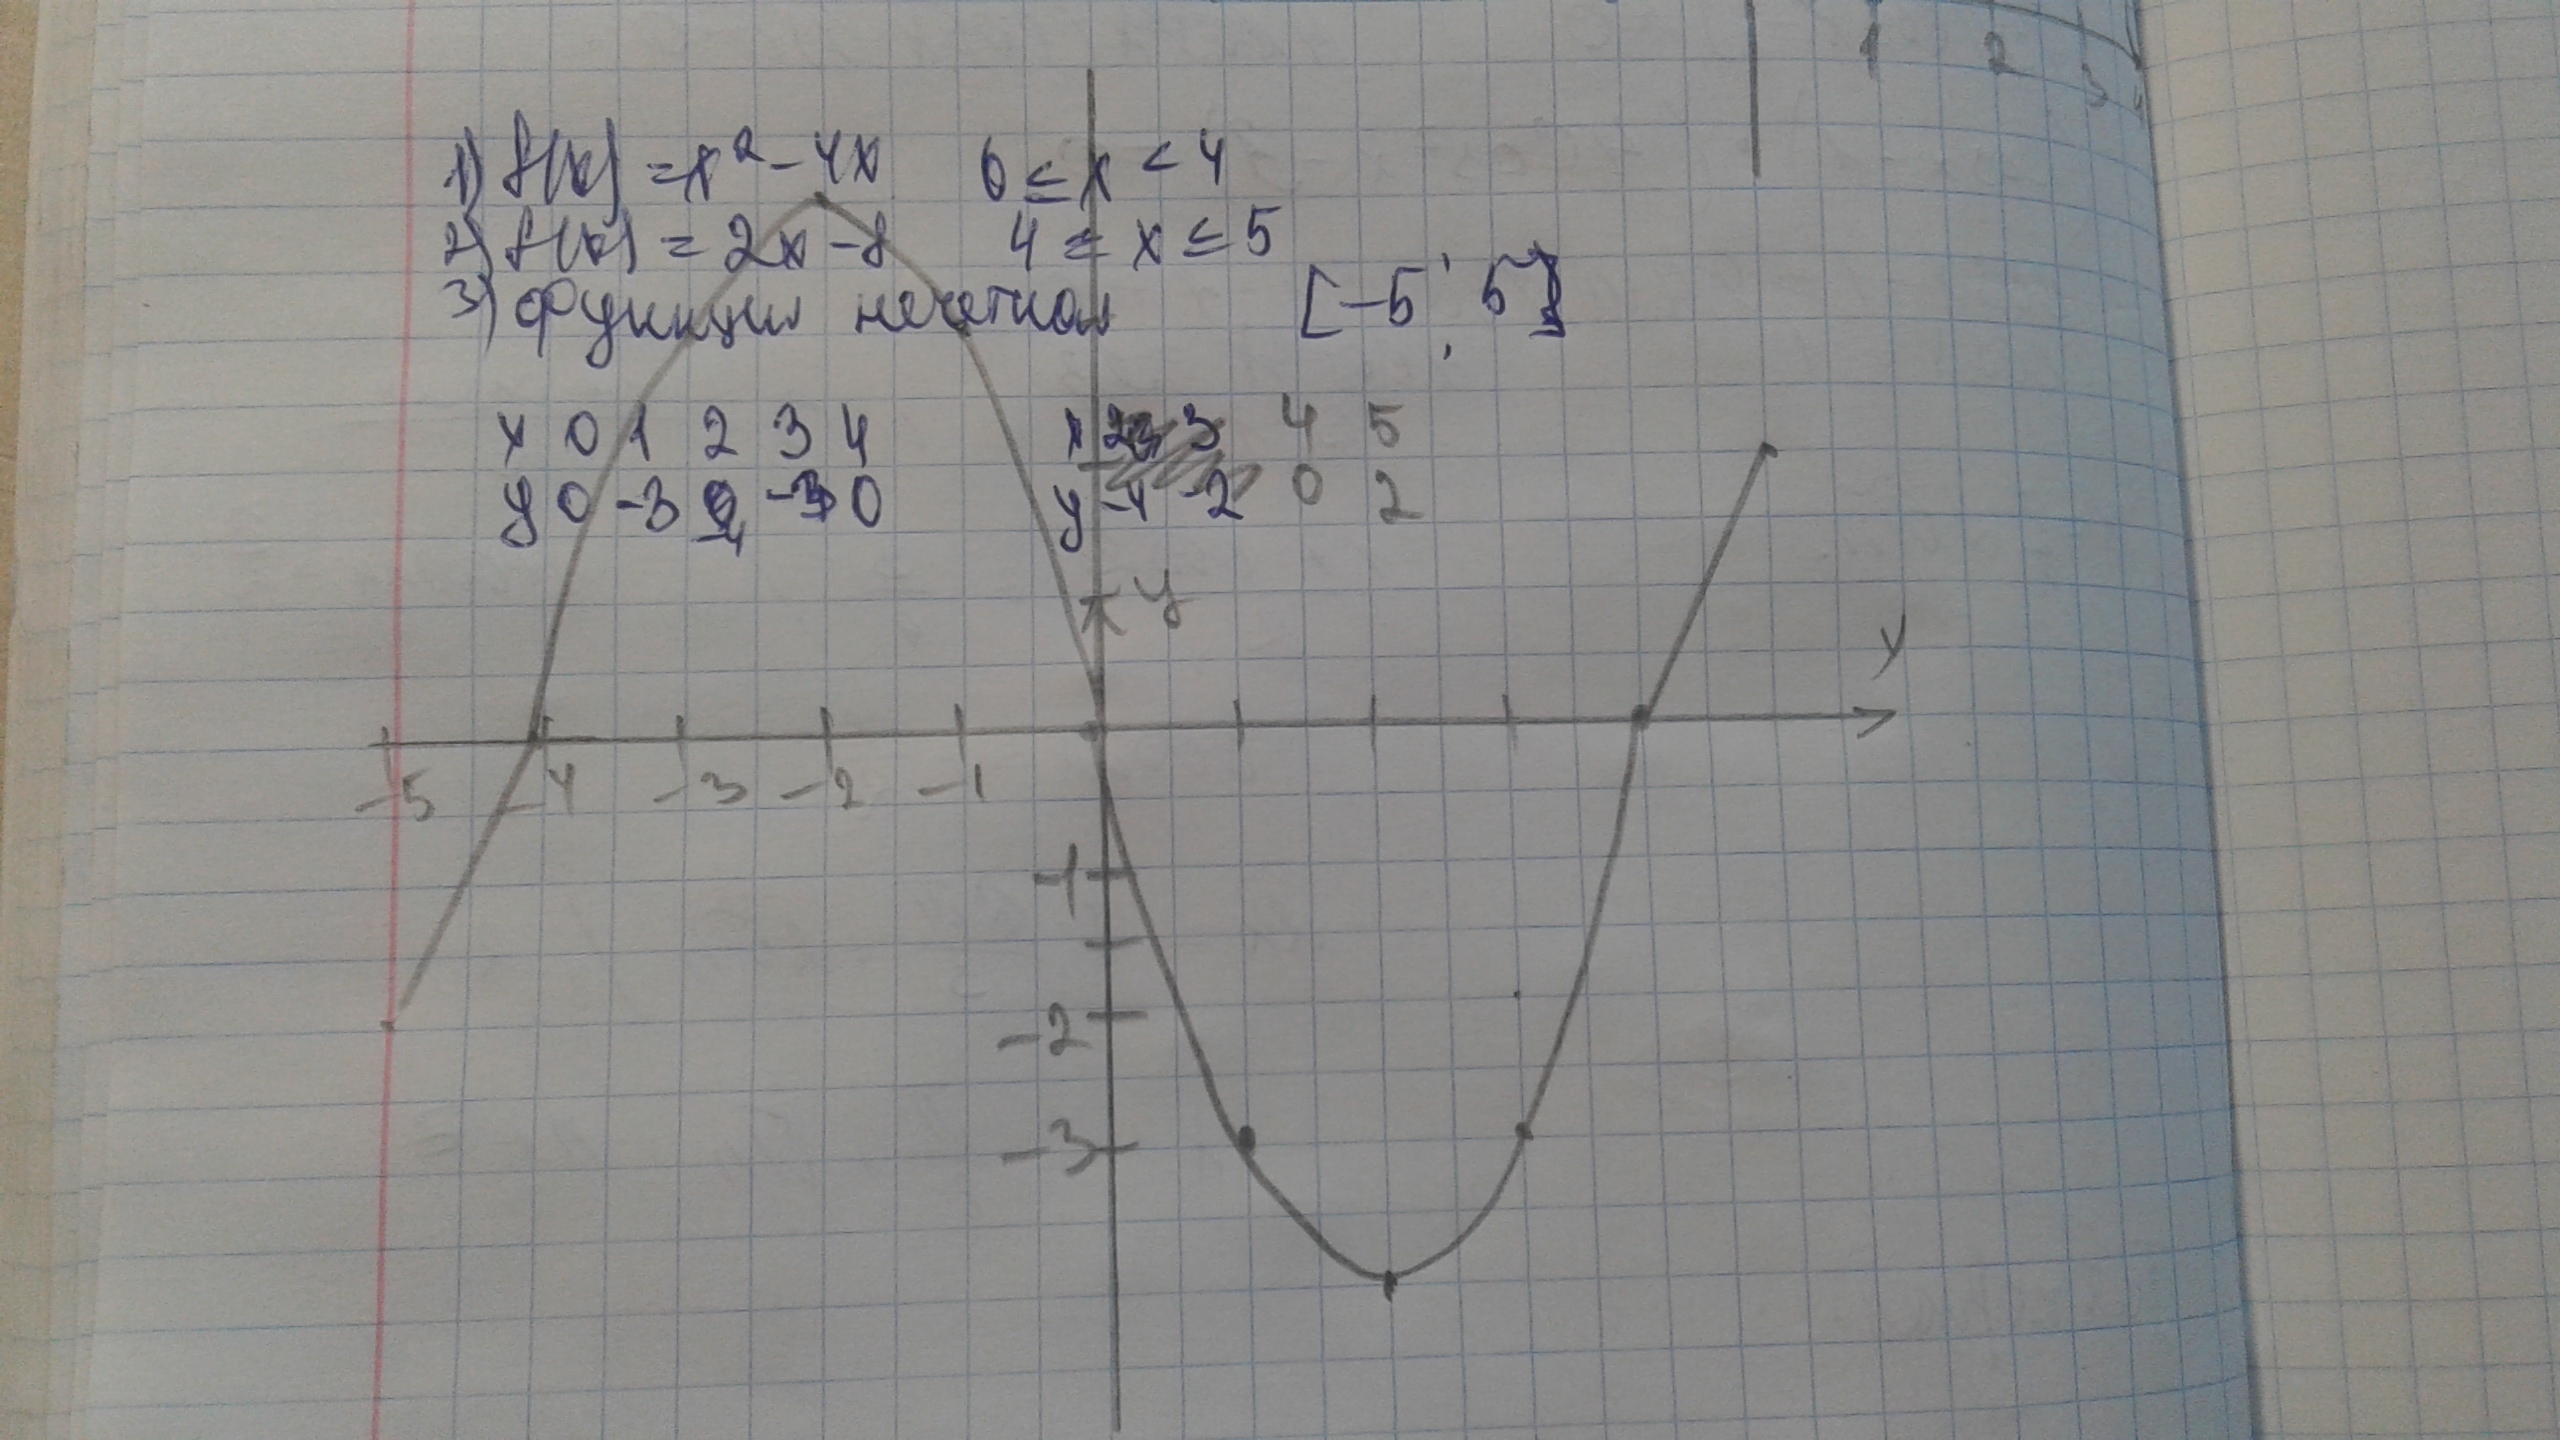 1 2 3
1) f(x) = x² - 4x 0 ≤ x < 4
2) f(x) = 2x - 8 4 ≤ x ≤ 5
3) функция нечетная [-5; 5]
x 0 1 2 3 4 x 2 3 4 5
y 0 -3 -4 -3 0 y -4 -2 0 2
y
x
-5 -4 -3 -2 -1
-1
-2
-3